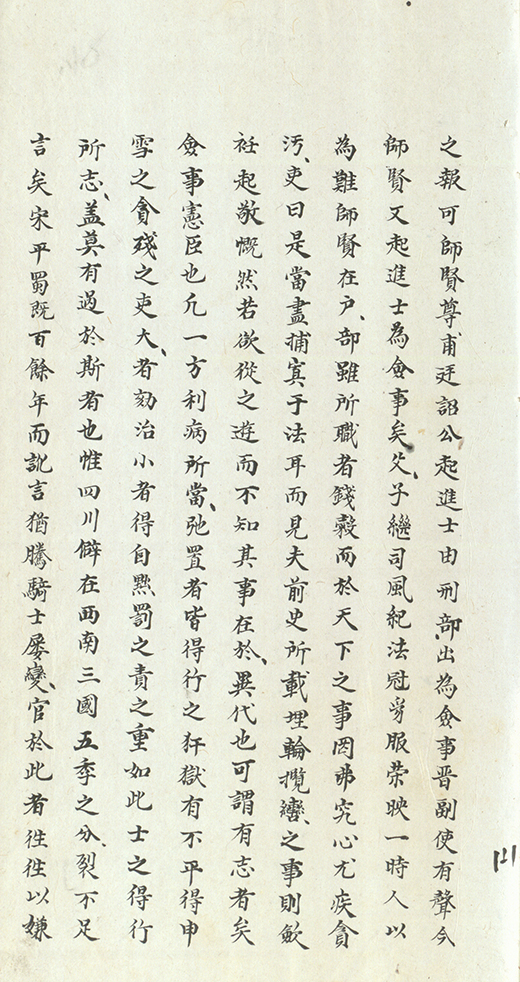 之報可師賢尊甫廷詔公起進士由刑部出為僉事晋副使有聲今
師賢又起進士為僉事矣父子繼司風紀法冠豸服荣映一時人以
為難師賢在户部雖所職者錢穀而於天下之事罔弗究心尤疾貪
汚吏曰是當盡捕寘于法耳而見夫前史所載埋輪攬轡之事則斂
衽起敬慨然若欲從之遊而不知其事在於異代也可謂有志者矣
僉事憲臣也凢一方利病所當弛置者皆得行之犴獄有不平得申
雪之貪殘之吏大者劾治小者得自黜罰之責之重如此士之得行
所志盖莫有過於斯者也惟四川僻在西南三國五季之分裂不足
言矣宋平蜀既百餘年而訛言猶騰騎士屡變官於此者徃徃以嫌